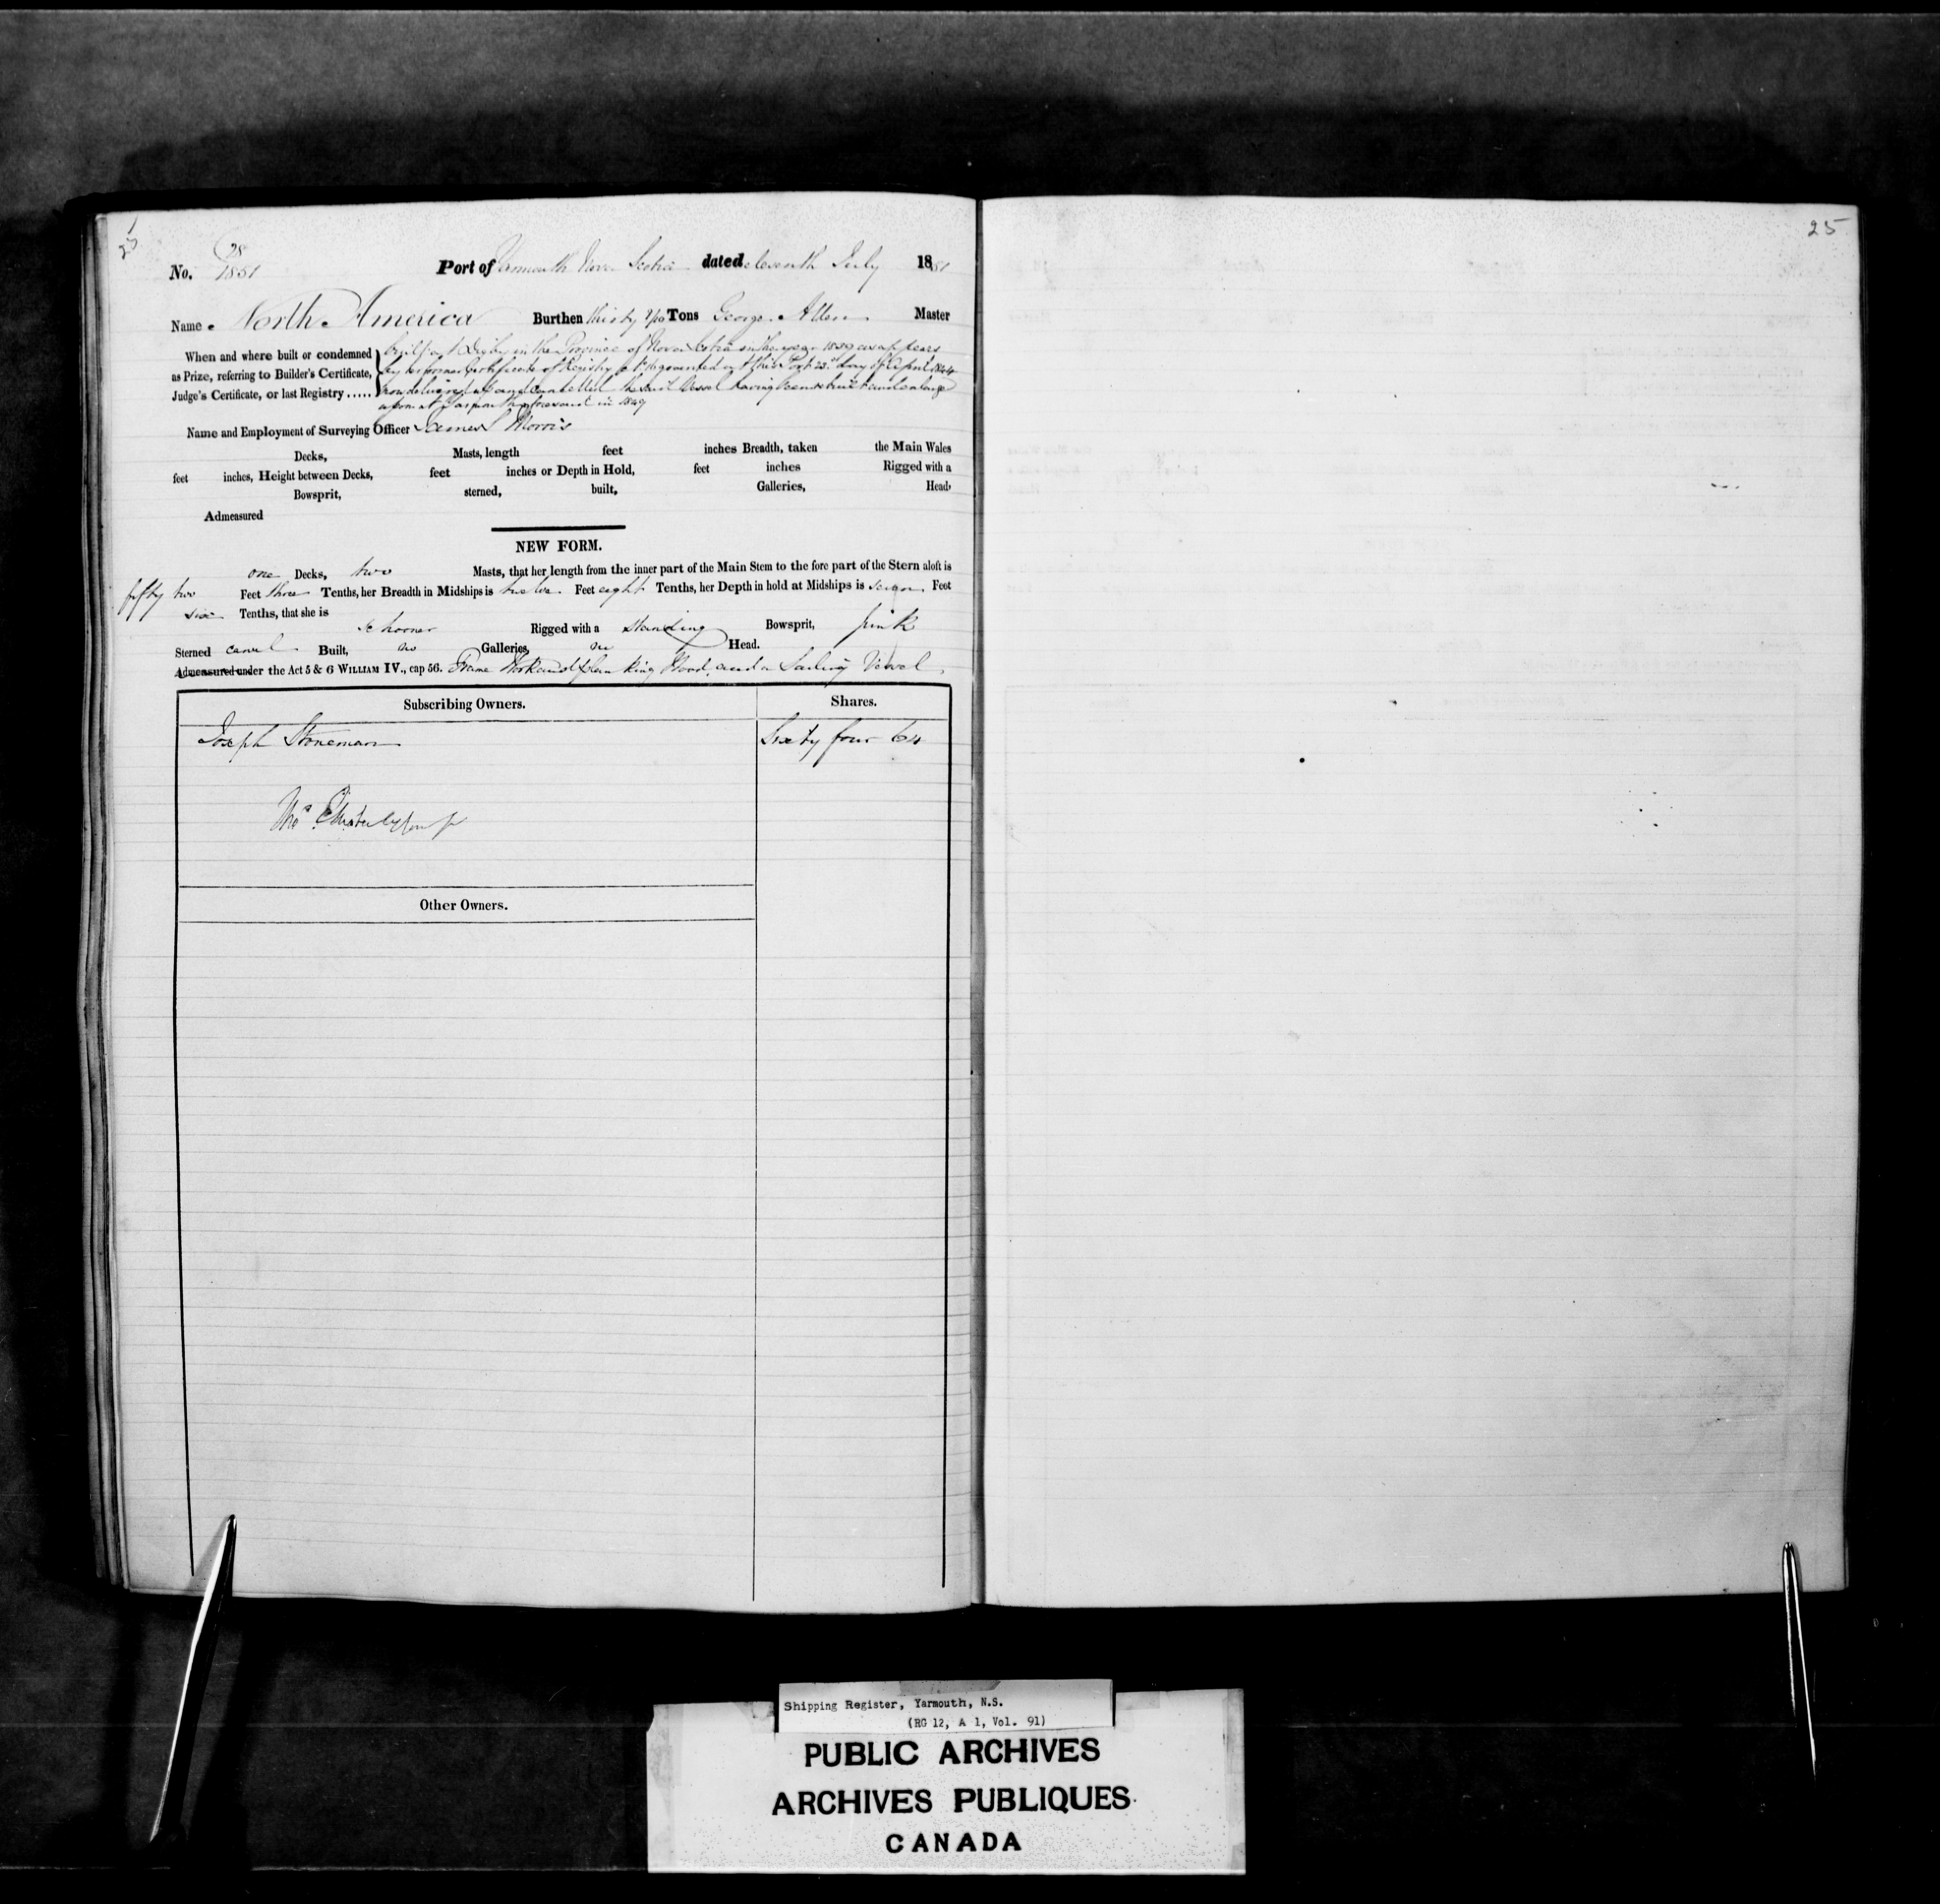 25
No. 28
1851
Port of Yarmouth Nova Scotia dated eleventh July 1851
Name North America Burthen thirty Tons George Allen Master
When and where built or condemned
as Prize, referring to Builder's Certificate,
Judge's Certificate, or last Registry .....
built at Digby in the Province of Nova Scotia in the year 1830 as appears
by her former Certificate of Registry granted at this Port 23rd day of April 1844
now delivered up and cancelled the said Vessel having been rebuilt and enlarged
at Yarmouth aforesaid in 1849
Name and Employment of Surveying Officer James S Morris
Decks, Masts, length feet inches Breadth, taken the Main Wales
feet inches, Height between Decks, feet inches or Depth in Hold, feet inches Rigged with a
Bowsprit, sterned, built, Galleries, Head,
Admeasured
NEW FORM.
one Decks, two Masts, that her length from the inner part of the Main Stem to the fore part of the Stern aloft is
fifty two Feet three Tenths, her Breadth in Midships is twelve Feet eight Tenths, her Depth in hold at Midships is seven Feet
six Tenths, that she is
schooner Rigged with a standing Bowsprit, pink
Sterned carvel Built, no Galleries, no Head.
Admeasured under the Act 5 & 6 WILLIAM IV., cap 56. Frame Work and planking Wood, and a Sailing Vessel
Subscribing Owners. Shares.
Joseph Stoneman Sixty four 64
Other Owners.
Shipping Register, Yarmouth, N.S.
(RG 12, A 1, Vol. 91)
PUBLIC ARCHIVES
ARCHIVES PUBLIQUES
CANADA